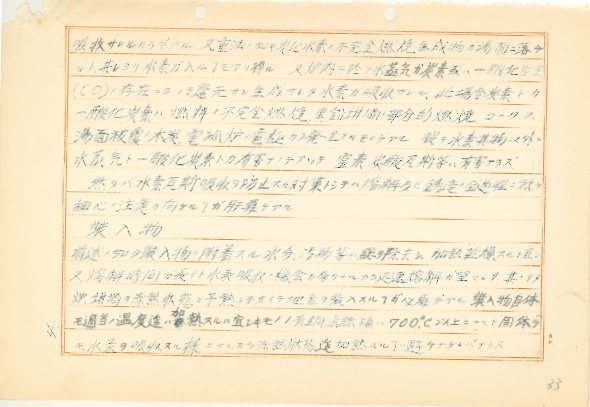 吸收サレルカラデアル 又重油ノ如キ炭化水素ノ不完全燃焼生成物ガ湯面ニ落チ
ルト、其レヨリ水素ガ入ル「モアリ得ル 又炉内ニ於テ水蒸気ガ炭素或ハ一酸化炭素
(CO)ノ存在ニヨリ還元サレ生成サレタ水素ガ吸收サレル、此場合炭素トカ
一酸化炭素ハ、燃料ノ不完全燃焼、黒鉛坩堝ノ部分的燃焼、コークス、
湯面被覆ノ木炭、電弧炉ノ電極カラ発生スルモノデアル 故ニ水素其物以外ニ
水蒸気ト一酸化炭素トガ有害ナノデアツテ 窒素 炭酸瓦斯等ハ有害ナラズ
然ラバ水素瓦斯吸收ヲ防止スル対策トシテハ熔解及ビ鋳造ノ全過程ニ於テ
細心ノ注意ヲ向ケル「ガ肝要デアル
装入物
前述ノ如ク装入物ニ附着スル水分、汚物等ハ総テ除去シ 加熱乾燥スルト宜シ
又熔解時間ガ長イト水素吸收ノ機会ガ多クナルカラ迅速熔解ガ望マシク、其ノタメ
炉、坩堝ヲ赤熱状態ニ予熱シテオイテ地金ヲ装入スル「ガ必要デアル 装入物自体
モ適当ノ温度迄ハ加熱スルハ宜シキモノノ 700℃以上ニナルト固体デ
モ水素ヲ吸收スル様ニナルカラ赤熱状態迄加熱スル「ハ避ケナケレバナラヌ
33